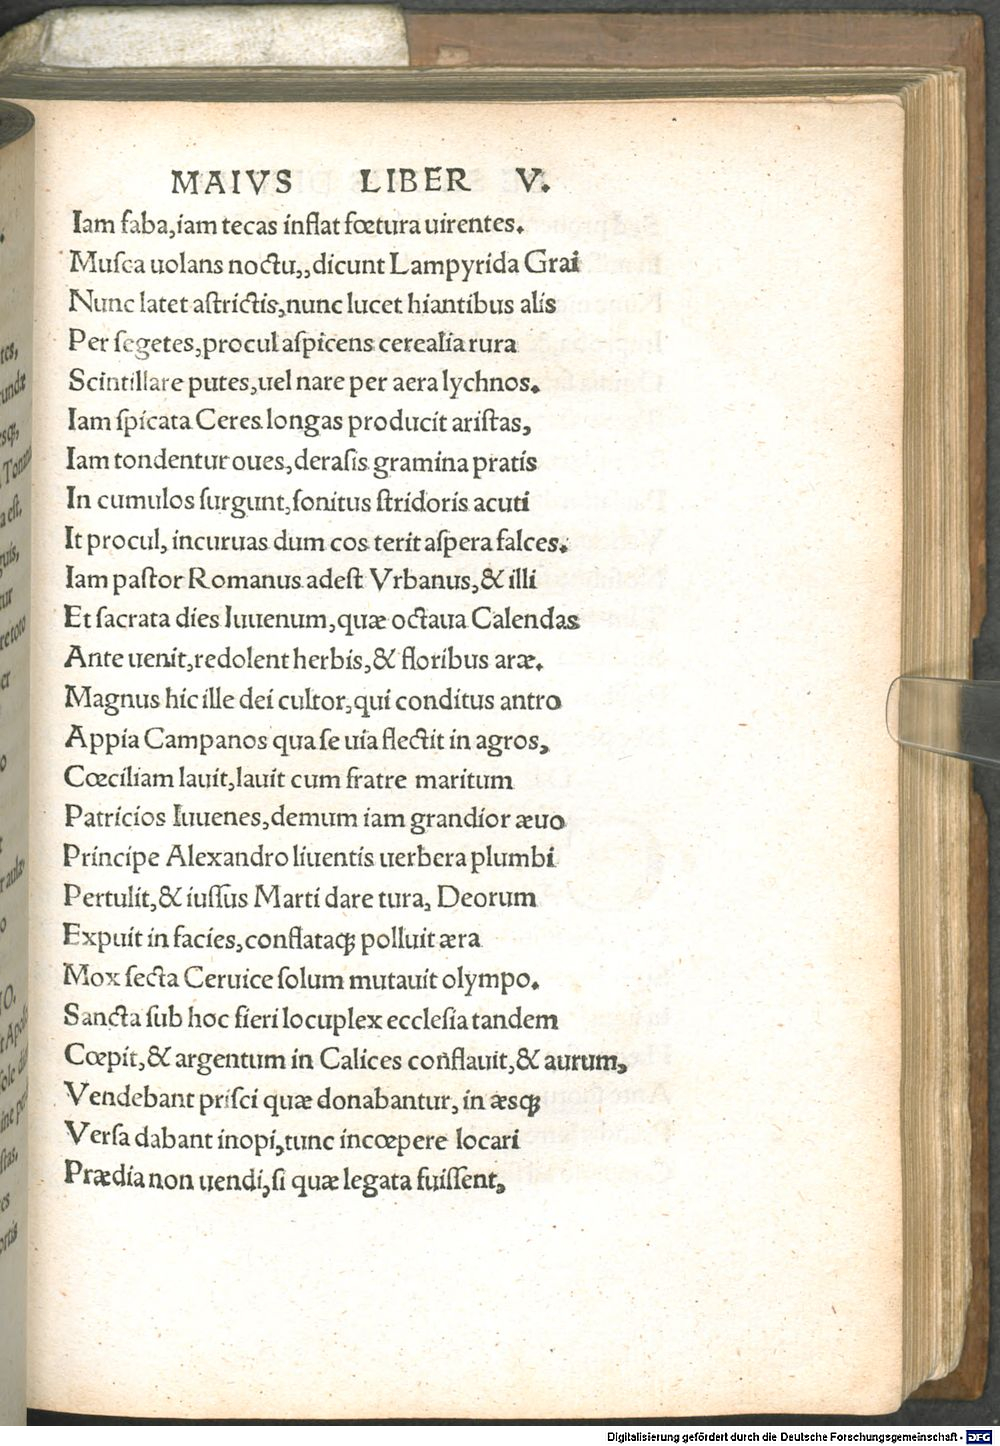 MAIVS LIBER V.
Iam faba,iam tecas inflat fœtura uirentes.
Muſca uolans noctu,,dicunt Lampyrida Grai
Nunc latet aſtrictis,nunc lucet hiantibus alis
Per ſegetes,procul aſpicens cerealia rura
Scintillare putes,uel nare per aera lychnos.
Iam ſpicata Ceres longas producit ariſtas,
Iam tondentur oues,deraſis gramina pratis
In cumulos ſurgunt,ſonitus ſtridoris acuti
It procul, incuruas dum cos terit aſpera falces.
Iam paſtor Romanus adeſt Vrbanus,& illi
Et ſacrata dies Iuuenum,quæ octaua Calendas
Ante uenit,redolent herbis,& floribus aræ.
Magnus hic ille dei cultor,qui conditus antro
Appia Campanos qua ſe uia flectit in agros,
Cœciliam lauit,lauit cum fratre maritum
Patricios Iuuenes,demum iam grandior æuo
Principe Alexandro liuentis uerbera plumbi
Pertulit,& iuſſus Marti dare tura, Deorum
Expuit in facies,conflataqꝫ polluit æra
Mox ſecta Ceruice ſolum mutauit olympo.
Sancta ſub hoc fieri locuplex eccleſia tandem
Cœpit,& argentum in Calices conflauit,& aurum,
Vendebant priſci quæ donabantur, in æsqꝫ
Verſa dabant inopi,tunc incœpere locari
Prædia non uendi,ſi quæ legata fuiſſent,
tes,
undæ
esqꝫ,
Tonan
a eſt.
guis,
tur
re toto
er
o
t
r aulæ
o
IO.
t Apol
ſole di
ine per
ſtas,
es
ortis
Digitalisierung gefördert durch die Deutsche Forschungsgemeinschaft - DFG